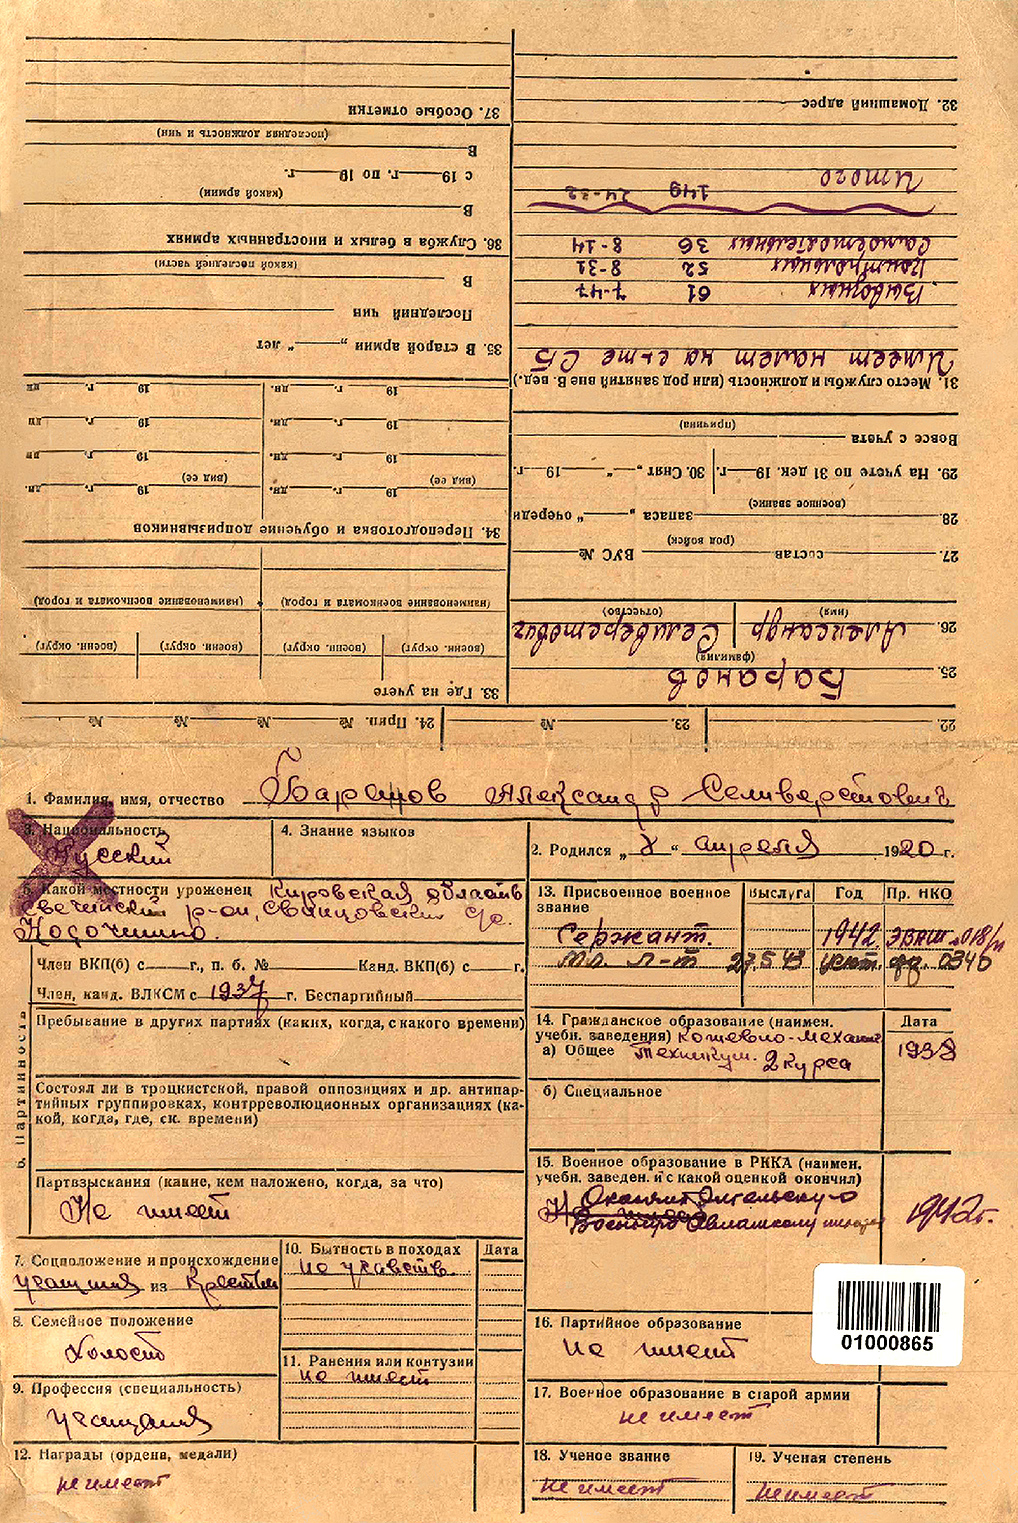 22.
23. №
24. Прип. № № № №
25. Баранов
(фамилия)
26. Александр Селиверстович
(имя) (отчество)
27. состав ВУС №
(род войск)
28. запаса „ “ очереди
(военное звание)
29. На учете по 31 дек. 19 г. 30. Снят „ “ 19 г.
Вовсе с учета
(причина)
31. Место службы и должность (или род занятий вне В. вед.).
Имеет налет на с-те СБ
Вывозных 61 7-47
Контрольных 52 8-31
Самостоятельных 36 8-14
Итого 149 24-32
32. Домашний адрес
33. Где на учете
(воен. округ) (воен. округ) (воен. округ) (воен. округ)
(наименование военкомата и город) (наименование военкомата и город)
34. Переподготовка и обучение допризывников
19 г. дн. 19 г. дн
(вид ее) (вид ее)
19 г. дн. 19 г. дн
19 г. дн. 19 г. дн
19 г. дн. 19 г. дн
35. В старой армии „ “ лет
Последний чин
В
(какой последней части)
36. Служба в белых и иностранных армиях
В
(какой армии)
с 19 г. по 19 г.
В
(последняя должность и чин)
37. Особые отметки
1. Фамилия, имя, отчество Баранов Александр Селиверстович
3. Национальность
Русский
4. Знание языков
2. Родился „ X “ апреля 1920 г.
5. Какой местности уроженец Кировская область
Свечинский р-он, Свинцовский с/с.
13. Присвоенное военное звание Выслуга Год Пр. НКО
Сержант. 1942 ЗВАШ 018/н
мл. л-т 27.5.43 0340
6. Партийность
Член ВКП(б) с г., п. б. № Канд. ВКП(б) с г.
Член, канд. ВЛКСМ с 1937 г. Беспартийный
Пребывание в других партиях (каких, когда, с какого времени)
Состоял ли в троцкистской, правой оппозициях и др. антипар-
тийных группировках, контрреволюционных организациях (ка-
кой, когда, где, ск. времени)
Партвзыскания (какие, кем наложено, когда, за что)
Не имеет
14. Гражданское образование (наимен. Дата
учебн. заведения) Кожевно-механич
а) Общее техникум. 1938
2 курса
б) Специальное
15. Военное образование в РККА (наимен.
учебн. заведен. и с какой оценкой окончил)
1942г.
7. Соцположение и происхождение
учащийся из крестьян
8. Семейное положение
Холост
9. Профессия (специальность)
учащийся
10. Бытность в походах Дата
не участв.
11. Ранения или контузии
не имеет
12. Награды (ордена, медали)
не имеет
16. Партийное образование
не имеет
17. Военное образование в старой армии
не имеет
18. Ученое звание
не имеет
19. Ученая степень
не имеет
01000865